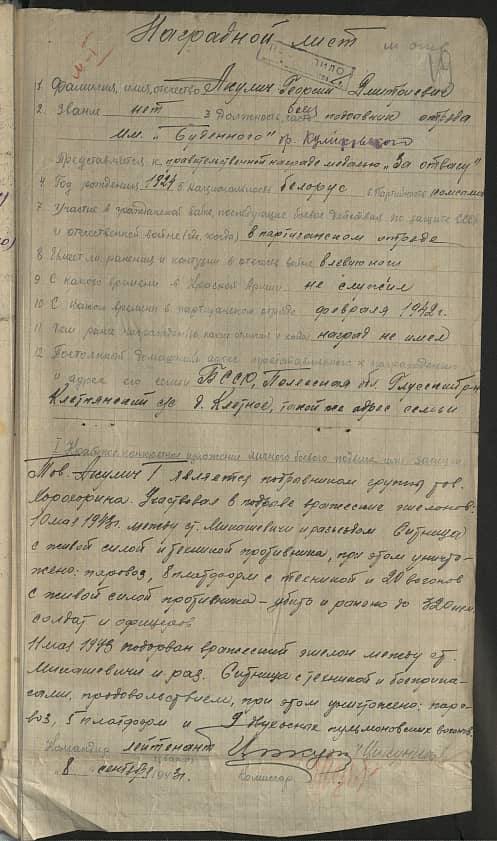 Наградной лист
1. Фамилия, имя, отчество Акулич Георгий Дмитриевич
2. Звание нет 3. Должность, часть подрывник отряда
им. "Буденного" бр. Куликовского
Представляется к правительственной награде медалью "За отвагу"
4. Год рождения 1924 5. Национальность белорус 6. Партийность комсомол
7. Участие в гражданской войне, последующие боевые действия по защите СССР
и отечественной войне (где, когда) в партизанском отряде
8. Имеет ли ранения и контузии в отечеств. войне в левую ногу
9. С какого времени в Красной Армии не служил
10. С какого времени в партизанском отряде февраля 1942 г.
11. Чем ранее награжден (за какие отличия и когда) наград не имел
12. Постоянный домашний адрес представляемого к награждению
и адрес его семьи БССР, Полесская обл. Глусский р-н
Клетнянский с/с д. Клетное, такой же адрес семьи
I. Краткое конкретное изложение личного боевого подвига или заслуги
Тов. Акулич Г является подрывником группы тов.
Участвовал в подрыве вражеских эшелонов:
10 мая 1943 г. между ст. Микашевичи и разъездом Ситница
с живой силой и техникой противника, при этом уничто-
жено: паровоз, 8 платформ с техникой и 20 вагонов
с живой силой противника – убито и ранено до 320 нем.
солдат и офицеров
11 мая 1943 подорван вражеский эшелон между ст.
Микашевичи и раз. Ситница с техникой и боеприпа-
сами, продовольствием, при этом уничтожено: паро-
воз, 5 платформ и 9 двухосных пульмоновских вагонов
Командир лейтенант
"8" сентября 1943 г. Комиссар